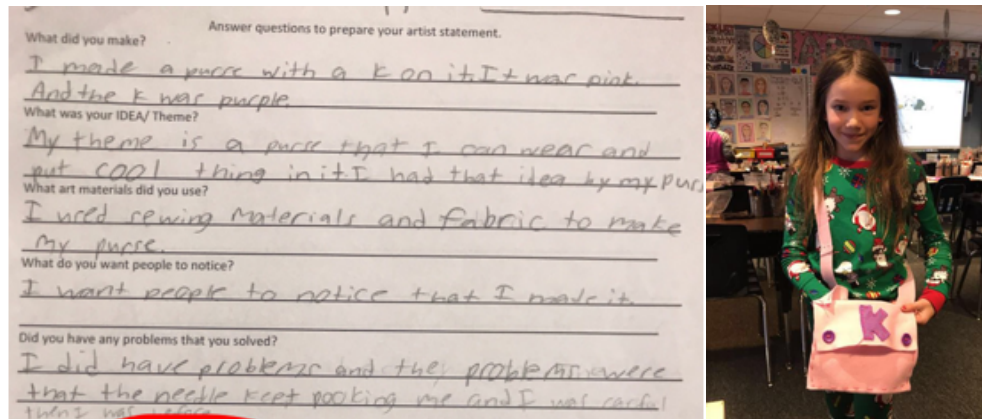 Answer questions to prepare your artist statement.
What did you make?
I made a purse with a K on it. It was pink.
And the K was purple.
What was your IDEA/ Theme?
My theme is a purse that I can wear and
put cool thing in it I had that idea by my purs
What art materials did you use?
I used sewing materials and fabric to make
my purse.
What do you want people to notice?
I want people to notice that I made it.
Did you have any problems that you solved?
I did have problems and the problems were
that the needle keet pooking me and I was carful
then I was
K